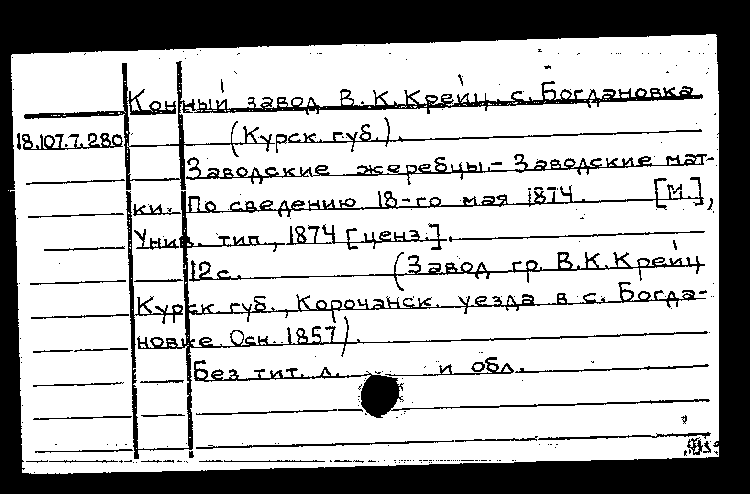 Конный завод В.К.Крейц. с. Богдановка
18.107.7.280 (Курск. губ.).
Заводские жеребцы.- Заводские мат-
ки. По сведению 18-го мая 1874. [М.],
Унив. тип., 1874 [ценз.].
12 с. (Завод гр. В.К.Крейц
Курск. губ., Корочанск. уезда в с. Богда-
новке. Осн. 1857).
Без тит. л. и обл.